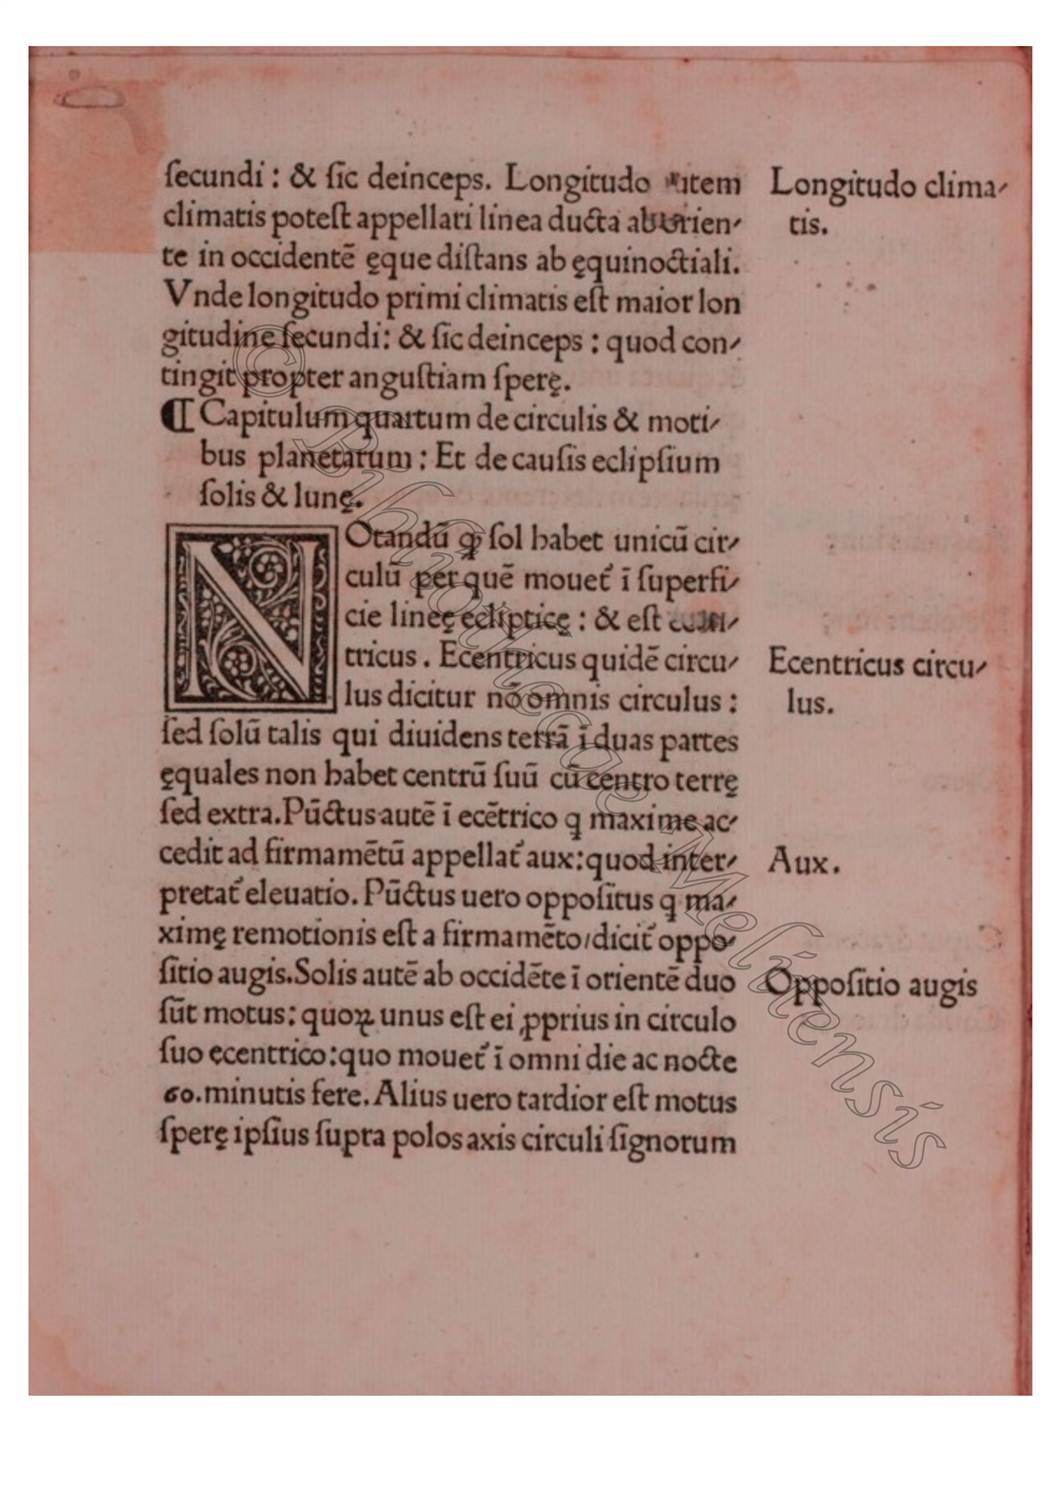 ſecundi : & ſic deinceps. Longitudo autem
climatis poteſt appellari linea ducta ab orien-
te in occidentē ęque diſtans ab ęquinoctiali.
Vnde longitudo primi climatis eſt maior lon
gitudine ſecundi: & ſic deinceps : quod con-
tingit propter anguſtiam ſperę.
¶ Capitulum quartum de circulis & moti-
bus planetarum : Et de cauſis eclipſium
ſolis & lunę.
NOtandū ꝙ ſol habet unicū cir-
culū per quē mouet᷑ ī ſuperfi-
cie lineę eclipticę : & eſt
tricus . Ecentricus quidē circu-
lus dicitur nō omnis circulus :
ſed ſolū talis qui diuidens terrā ī duas partes
ęquales non habet centrū ſuū cū centro terrę
ſed extra. Pūctus autē ī ecētrico q maxime ac-
cedit ad firmamētū appellat᷑ aux: quod inter-
pretat᷑ eleuatio. Pūctus uero oppoſitus q ma-
ximę remotionis eſt a firmamēto/dicit᷑ oppo-
ſitio augis. Solis autē ab occidēte ī orientē duo
ſūt motus: quoꝝ unus eſt ei ꝓprius in circulo
ſuo ecentrico: quo mouet᷑ ī omni die ac nocte
60. minutis fere. Alius uero tardior eſt motus
ſperę ipſius ſupra polos axis circuli ſignorum
Longitudo clima-
tis.
Ecentricus circu-
lus.
Aux.
Oppoſitio augis
© Bibliothecae Melitensis